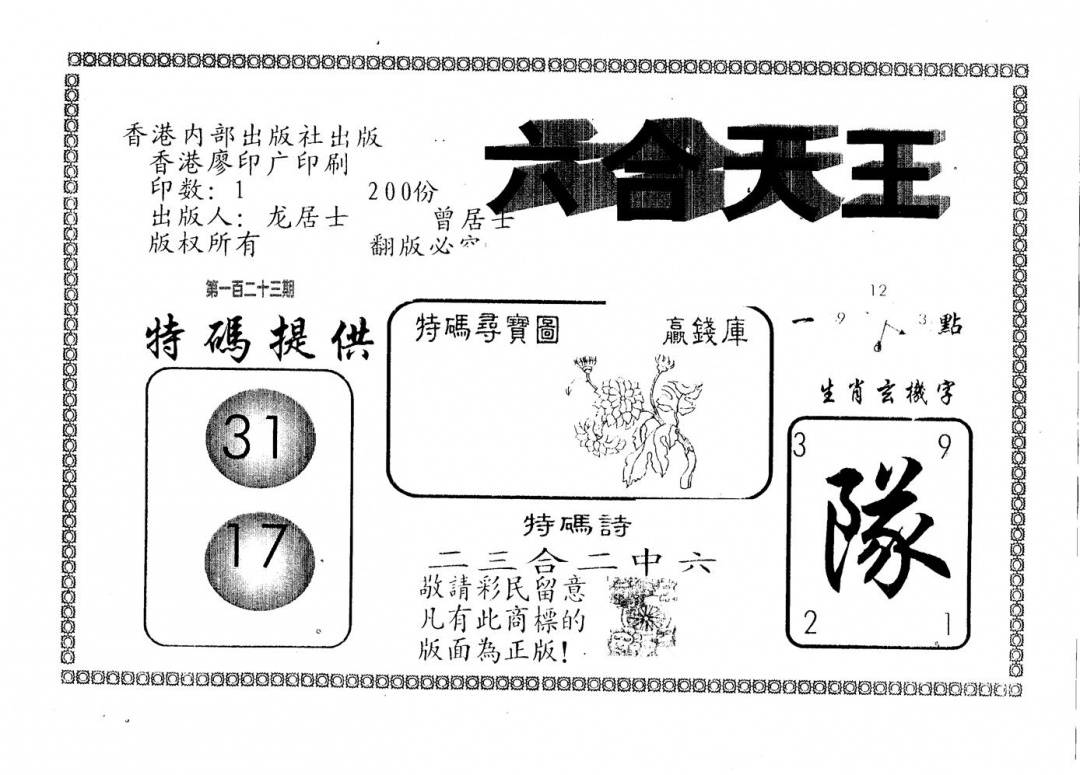 香港内部出版社出版
香港廖印广印刷
印数: 1 200份
出版人: 龙居士 曾居士
版权所有 翻版必究
六合天王
第一百二十三期
特碼提供
31
17
特碼尋寶圖 贏錢庫
特碼詩
二三合二中六
敬請彩民留意
凡有此商標的
版面為正版!
12
一 9 3 點
生肖玄機字
3 9
隊
2 1